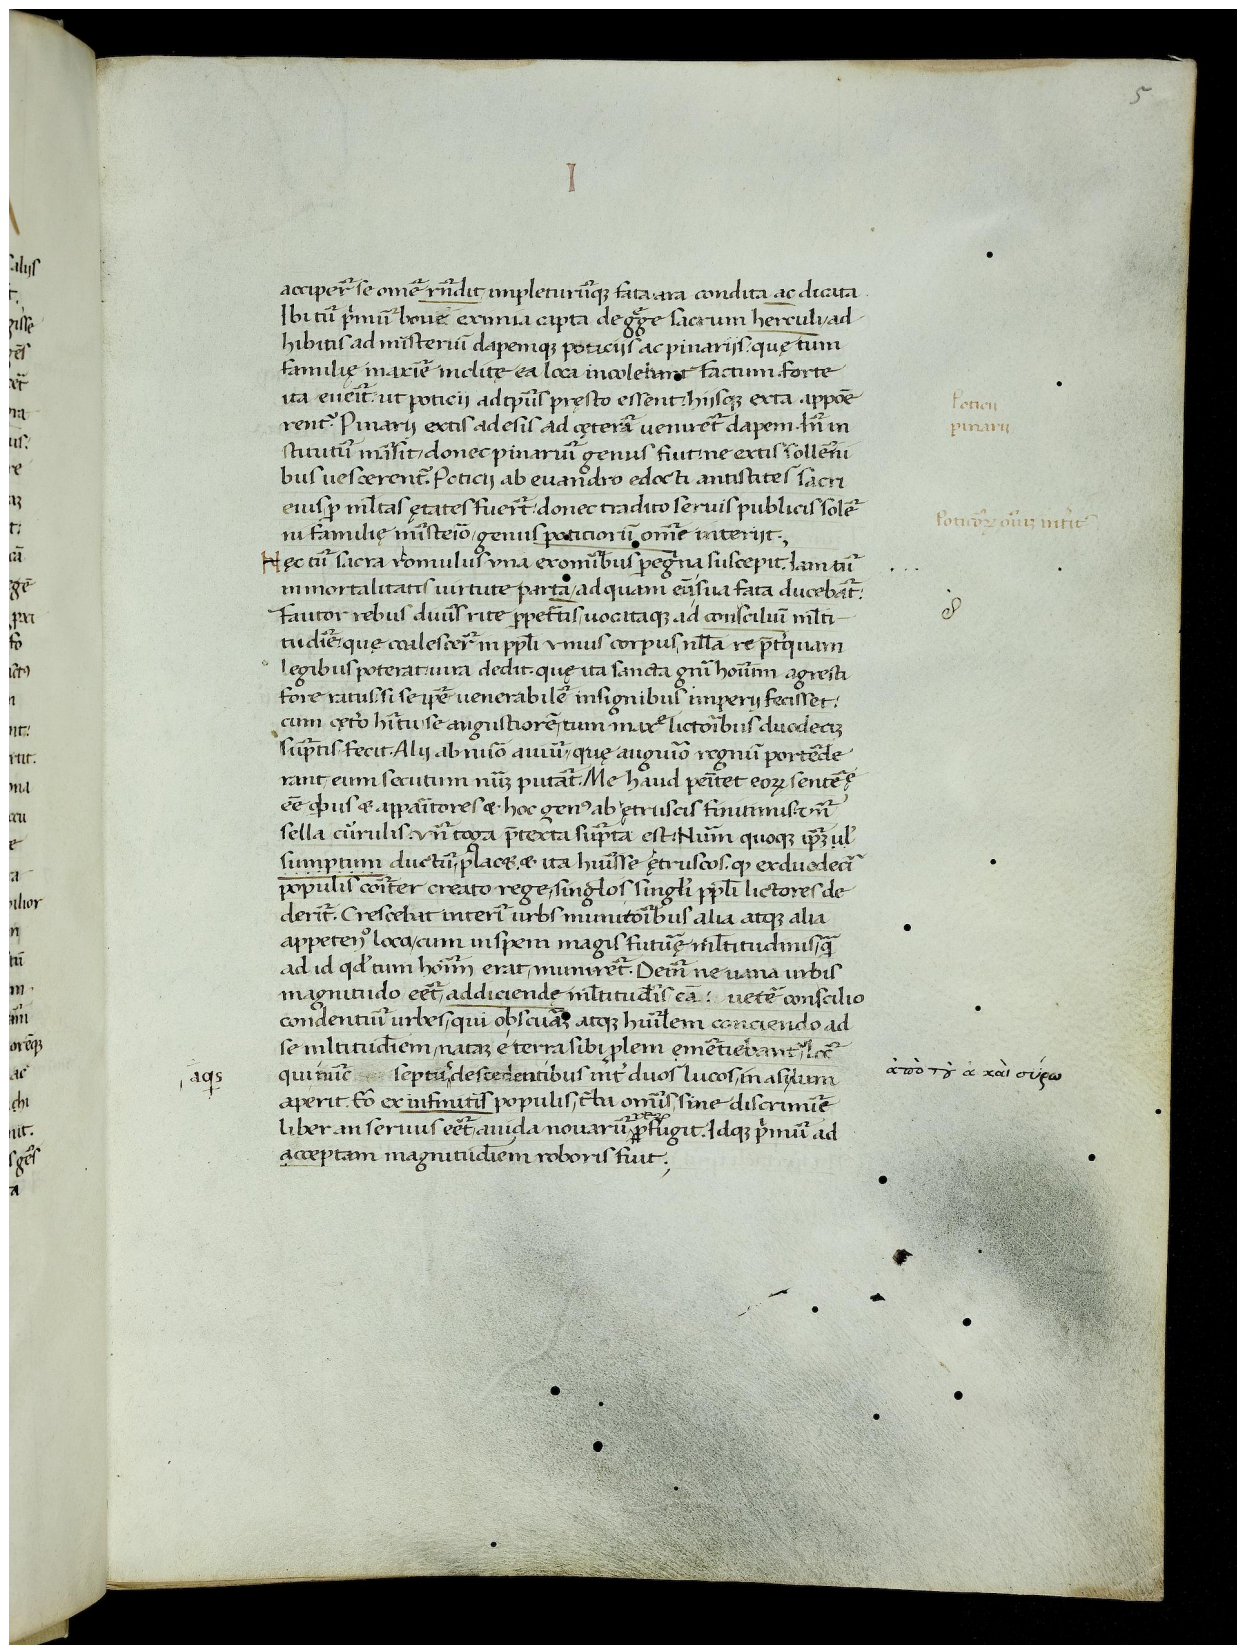 5
I
acciper̄ se omē r̄ndit, impleturūq; fata ara condita ac dicata.
Ibi tū p̄mū boue eximia capta de gᵉge sacrum herculi, ad
hibitis ad misteriū dapemq; poticijs ac pinarijs. quę tum
familię maxīe inclitę ea loca incolebant factum. forte
ita eueīt. ut poticij ad tp̄us pręsto essent. hijsq; exta appōe
rent᷒. Pinarij extis adesis ad cęterā uenirēt dapem. Īn in
stitutū māsit, donec pinariū genus fuit. ne extis sollēni
bus uescerent᷒. Poticij ab euandro edocti antistites sacri
eius p ml̄tas ętates fuer̄t. donec tradito seruis publicis solē
ni familię misteīo, genus poticiorū omē interijt.
Hęc tū sacra romulus vna ex omībus peregna suscepit. Iam tū
inmortalitatis uirtute parta, ad quam eū sua fata ducebāt.
Fautor rebus diuīs rite ppet̄tis, uocataq; ad consciliū ml̄ti
tudīe. quę coalescer̄ in ppl̄i vnius corpus, nl̄la re p̄tquam
legibus poterat. iura dedit. quę ita sancta gn̄i hoīum agresti
fore ratus. si se ip̄e uenerabilē insignibus imperij fecisset.
cum cęto hītu se augustiorē, tum maxᵉ lictoībus duodeciȝ
sūptis fecit. Alij ab nūo auiū, quę auguīo regnū portēde
rant, eum secutum nūȝ putāt. Me haud peītet eoꝝ sentētię
eē qbus & appaītores & hoc genꝰ ab ętruscis finitimis. vn̄
sella curulis. vn̄ toga p̄texta sūpta est. Nūm quoq; ip̄ȝ ul̄
sumptum ductū, placȝ. & ita huīsse ętruscos. q̨ ex duodecī
populis cōiter creato rege, singl̄os singl̄i ppl̄i lictores de
der̄it. Crescebat interī urbs munitōībus alia atq; alia
appetenꝰ loca, cum in spem magis futurę ml̄titudinis, q̄
ad id qd̄ tum hoīm erat, munirēt. Deīn ne uana urbis
magnitudo eēt, addiciendę ml̄titudīs cā: uetē conscilio
condentiū urbes, qui obscuāȝ atq; huīlem conciendo ad
se ml̄titudīem, nataȝ e terra sibi plem emētiebant᷒, locꝰ
qui nūc septū, descedentibus int̄ duos lucos, in asylum
aperit. Eō ex infinitis populis, t̄ba omīs, sine discrimīe
liber an seruus eēt, auida nouarū p̄fugit. Idq; p̄mū ad
acceptam magnitudīem roboris fuit.
Poticij
pinarij
ἀπὸ τοῦ ἀ καὶ σύρω